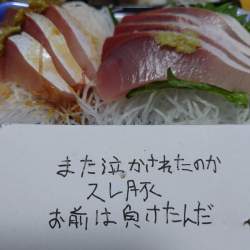 また泣かされたのか
スレ豚
お前は負けたんだ